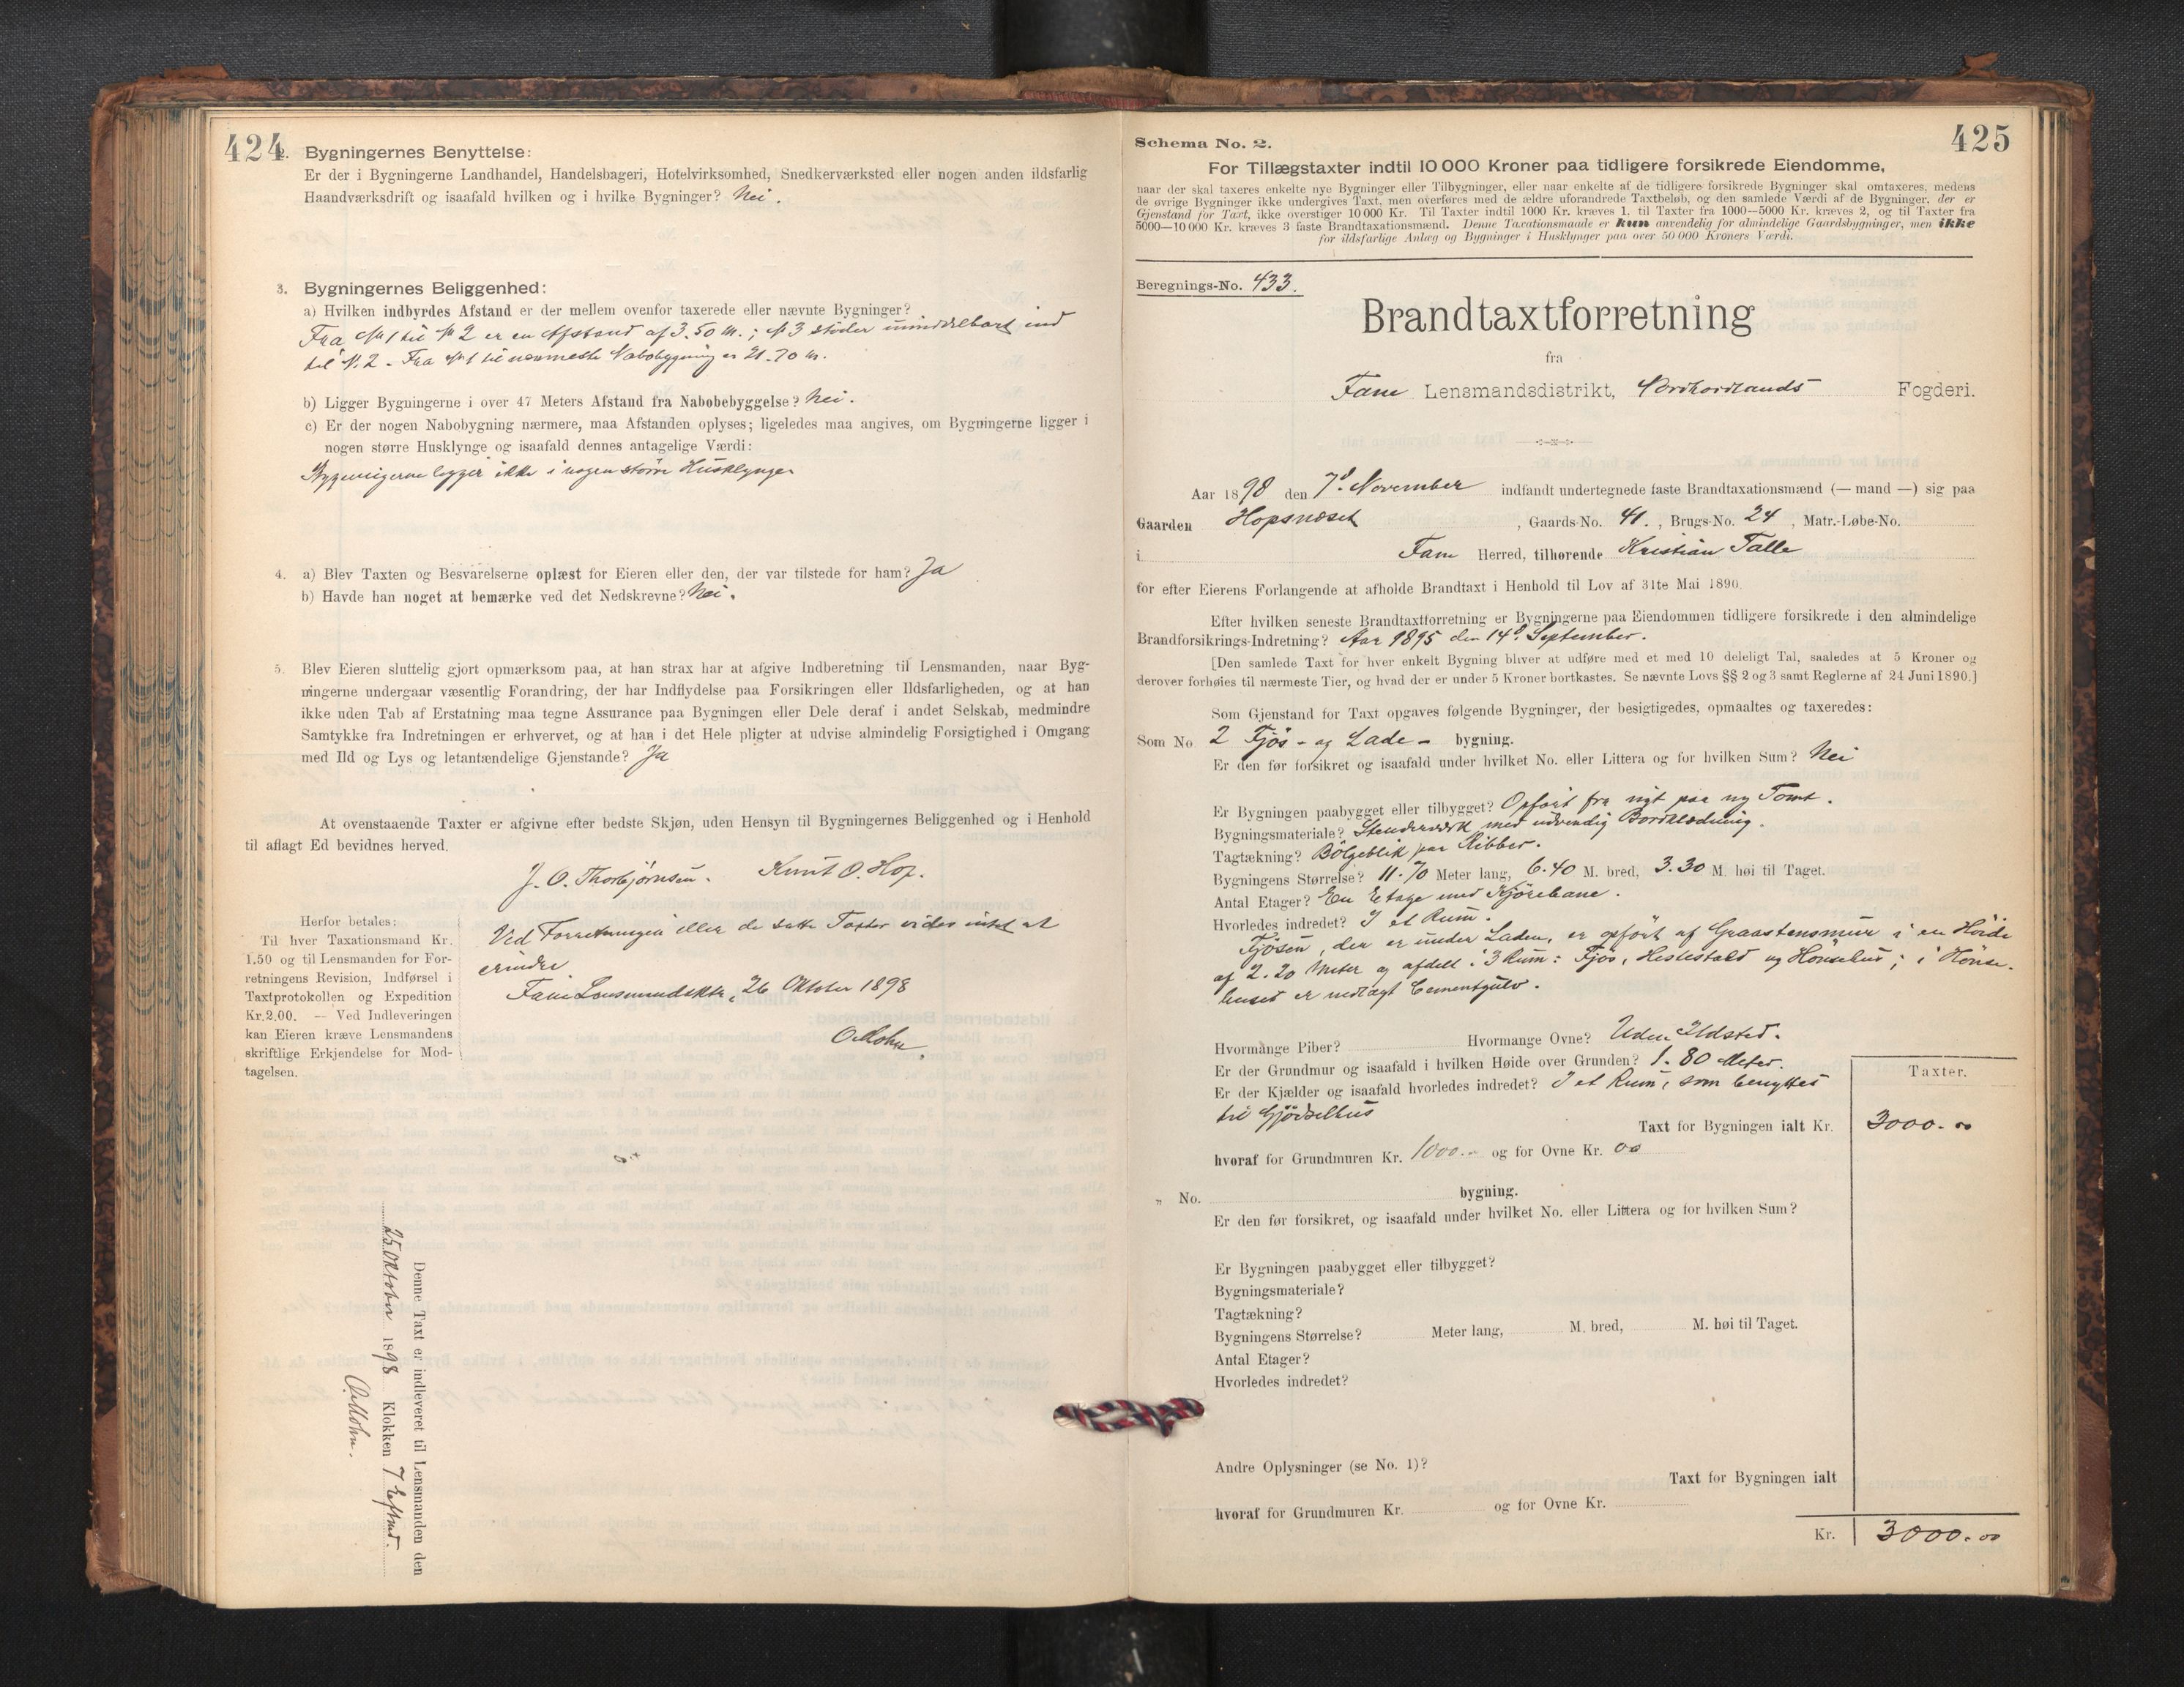 424
2. Bygningernes Benyttelse:
Er der i Bygningerne Landhandel, Handelsbageri, Hotelvirksomhed, Snedkerværksted eller nogen anden ildsfarlig
Haandværksdrift og isaafald hvilken og i hvilke Bygninger? Nei.
3. Bygningernes Beliggenhed:
a) Hvilken indbyrdes Afstand er der mellem ovenfor taxerede eller nævnte Bygninger?
Fra No 1 til No 2 er en Afstand af 3.50 m.; No 3 støder umiddelbart ind
til No. 2 - Fra No 1 til nærmeste Nabobygning er 21.70 m.
b) Ligger Bygningerne i over 47 Meters Afstand fra Nabobebyggelse? Nei.
c) Er der nogen Nabobygning nærmere, maa Afstanden oplyses; ligeledes maa angives, om Bygningerne ligger i
nogen større Husklynge og isaafald dennes antagelige Værdi:
Bygningerne ligger ikke i nogen større Husklynge
4. a) Blev Taxten og Besvarelserne oplæst for Eieren eller den, der var tilstede for ham? Ja
b) Havde han noget at bemærke ved det Nedskrevne? Nei.
5. Blev Eieren sluttelig gjort opmærksom paa, at han strax har at afgive Indberetning til Lensmanden, naar Byg-
ningerne undergaar væsentlig Forandring, der har Indflydelse paa Forsikringen eller Ildsfarligheden, og at han
ikke uden Tab af Erstatning maa tegne Assurance paa Bygningen eller Dele deraf i andet Selskab, medmindre
Samtykke fra Indretningen er erhvervet, og at han i det Hele pligter at udvise almindelig Forsigtighed i Omgang
med Ild og Lys og letantændelige Gjenstande? Ja
At ovenstaaende Taxter er afgivne efter bedste Skjøn, uden Hensyn til Bygningernes Beliggenhed og i Henhold
til aflagt Ed bevidnes herved.
J. O. Thorbjørnsen. Knut O. Hop.
Herfor betales:
Til hver Taxationsmand Kr.
1.50 og til Lensmanden for For-
retningens Revision, Indførsel i
Taxtprotokollen og Expedition
Kr. 2.00. — Ved Indleveringen
kan Eieren kræve Lensmandens
skriftlige Erkjendelse for Mod-
tagelsen.
Ved Forretningen eller de satte Taxter vides intet at
erindre.
Fane Lensmandsktr, 26 Oktober 1898
O. Mohn.
Denne Taxt er indleveret til Lensmanden den
25 Oktober 1898 Klokken 7 Eftmd.
O. Mohn.
425
Schema No. 2.
For Tillægstaxter indtil 10 000 Kroner paa tidligere forsikrede Eiendomme,
naar der skal taxeres enkelte nye Bygninger eller Tilbygninger, eller naar enkelte af de tidligere forsikrede Bygninger skal omtaxeres, medens
de øvrige Bygninger ikke undergives Taxt, men overføres med de ældre uforandrede Taxtbeløb, og den samlede Værdi af de Bygninger, der er
Gjenstand for Taxt, ikke overstiger 10 000 Kr. Til Taxter indtil 1000 Kr. kræves 1, til Taxter fra 1000—5000 Kr. kræves 2, og til Taxter fra
5000—10 000 Kr. kræves 3 faste Brandtaxationsmænd. Denne Taxationsmaade er kun anvendelig for almindelige Gaardsbygninger, men ikke
for ildsfarlige Anlæg og Bygninger i Husklynger paa over 50 000 Kroners Værdi.
Beregnings-No. 433.
Brandtaxtforretning
fra
Fane Lensmandsdistrikt, Nordhordlands Fogderi.
Aar 1898 den 7d. November indfandt undertegnede faste Brandtaxationsmænd (— mand —) sig paa
Gaarden Hopsnæset, Gaards-No. 41., Brugs-No. 24, Matr.-Løbe-No.
i Fane Herred, tilhørende Kristian Talle
for efter Eierens Forlangende at afholde Brandtaxt i Henhold til Lov af 31te Mai 1890.
Efter hvilken seneste Brandtaxtforretning er Bygningerne paa Eiendommen tidligere forsikrede i den almindelige
Brandforsikrings-Indretning? Aar 1895 den 14d. September.
[Den samlede Taxt for hver enkelt Bygning bliver at udføre med et med 10 deleligt Tal, saaledes at 5 Kroner og
derover forhøies til nærmeste Tier, og hvad der er under 5 Kroner bortkastes. Se nævnte Lovs §§ 2 og 3 samt Reglerne af 24 Juni 1890.]
Som Gjenstand for Taxt opgaves følgende Bygninger, der besigtigedes, opmaaltes og taxeredes:
Som No 2 Fjøs- og Lade- bygning.
Er den før forsikret og isaafald under hvilket No. eller Littera og for hvilken Sum? Nei
Er Bygningen paabygget eller tilbygget? Opført fra nyt paa ny Tomt.
Bygningsmateriale? Stenderværk med udvendig Bordklædning.
Tagtækning? Bölgeblik paa Ribber.
Bygningens Størrelse? 11.70 Meter lang, 6.40 M. bred, 3.30 M. høi til Taget.
Antal Etager? En Etage med Kjörebane.
Hvorledes indredet? I et Rum.
Fjösen, der er under Laden, er opført af Graastensmur i en Höide
af 2.20 Meter og afdelt i 3 Rum: Fjös, Hestestald og Hönsehus; i Hönse-
huset er nedlagt Cementgulv.
Hvormange Piber? Hvormange Ovne? Uden Ildsted.
Er der Grundmur og isaafald i hvilken Høide over Grunden? 1.80 Meter.
Er der Kjælder og isaafald hvorledes indredet? I et Rum, som benyttes
til Gjödselhus
Taxter.
Taxt for Bygningen ialt Kr. 3000.00
hvoraf for Grundmuren Kr. 1000.- og for Ovne Kr. 00
„ No. bygning.
Er den før forsikret, og isaafald under hvilket No. eller Littera og for hvilken Sum?
Er Bygningen paabygget eller tilbygget?
Bygningsmateriale?
Tagtækning?
Bygningens Størrelse? Meter lang, M. bred, M. høi til Taget.
Antal Etager?
Hvorledes indredet?
Andre Oplysninger (se No. 1)?
Taxt for Bygningen ialt
hvoraf for Grundmuren Kr. og for Ovne Kr.
Kr. 3000.00